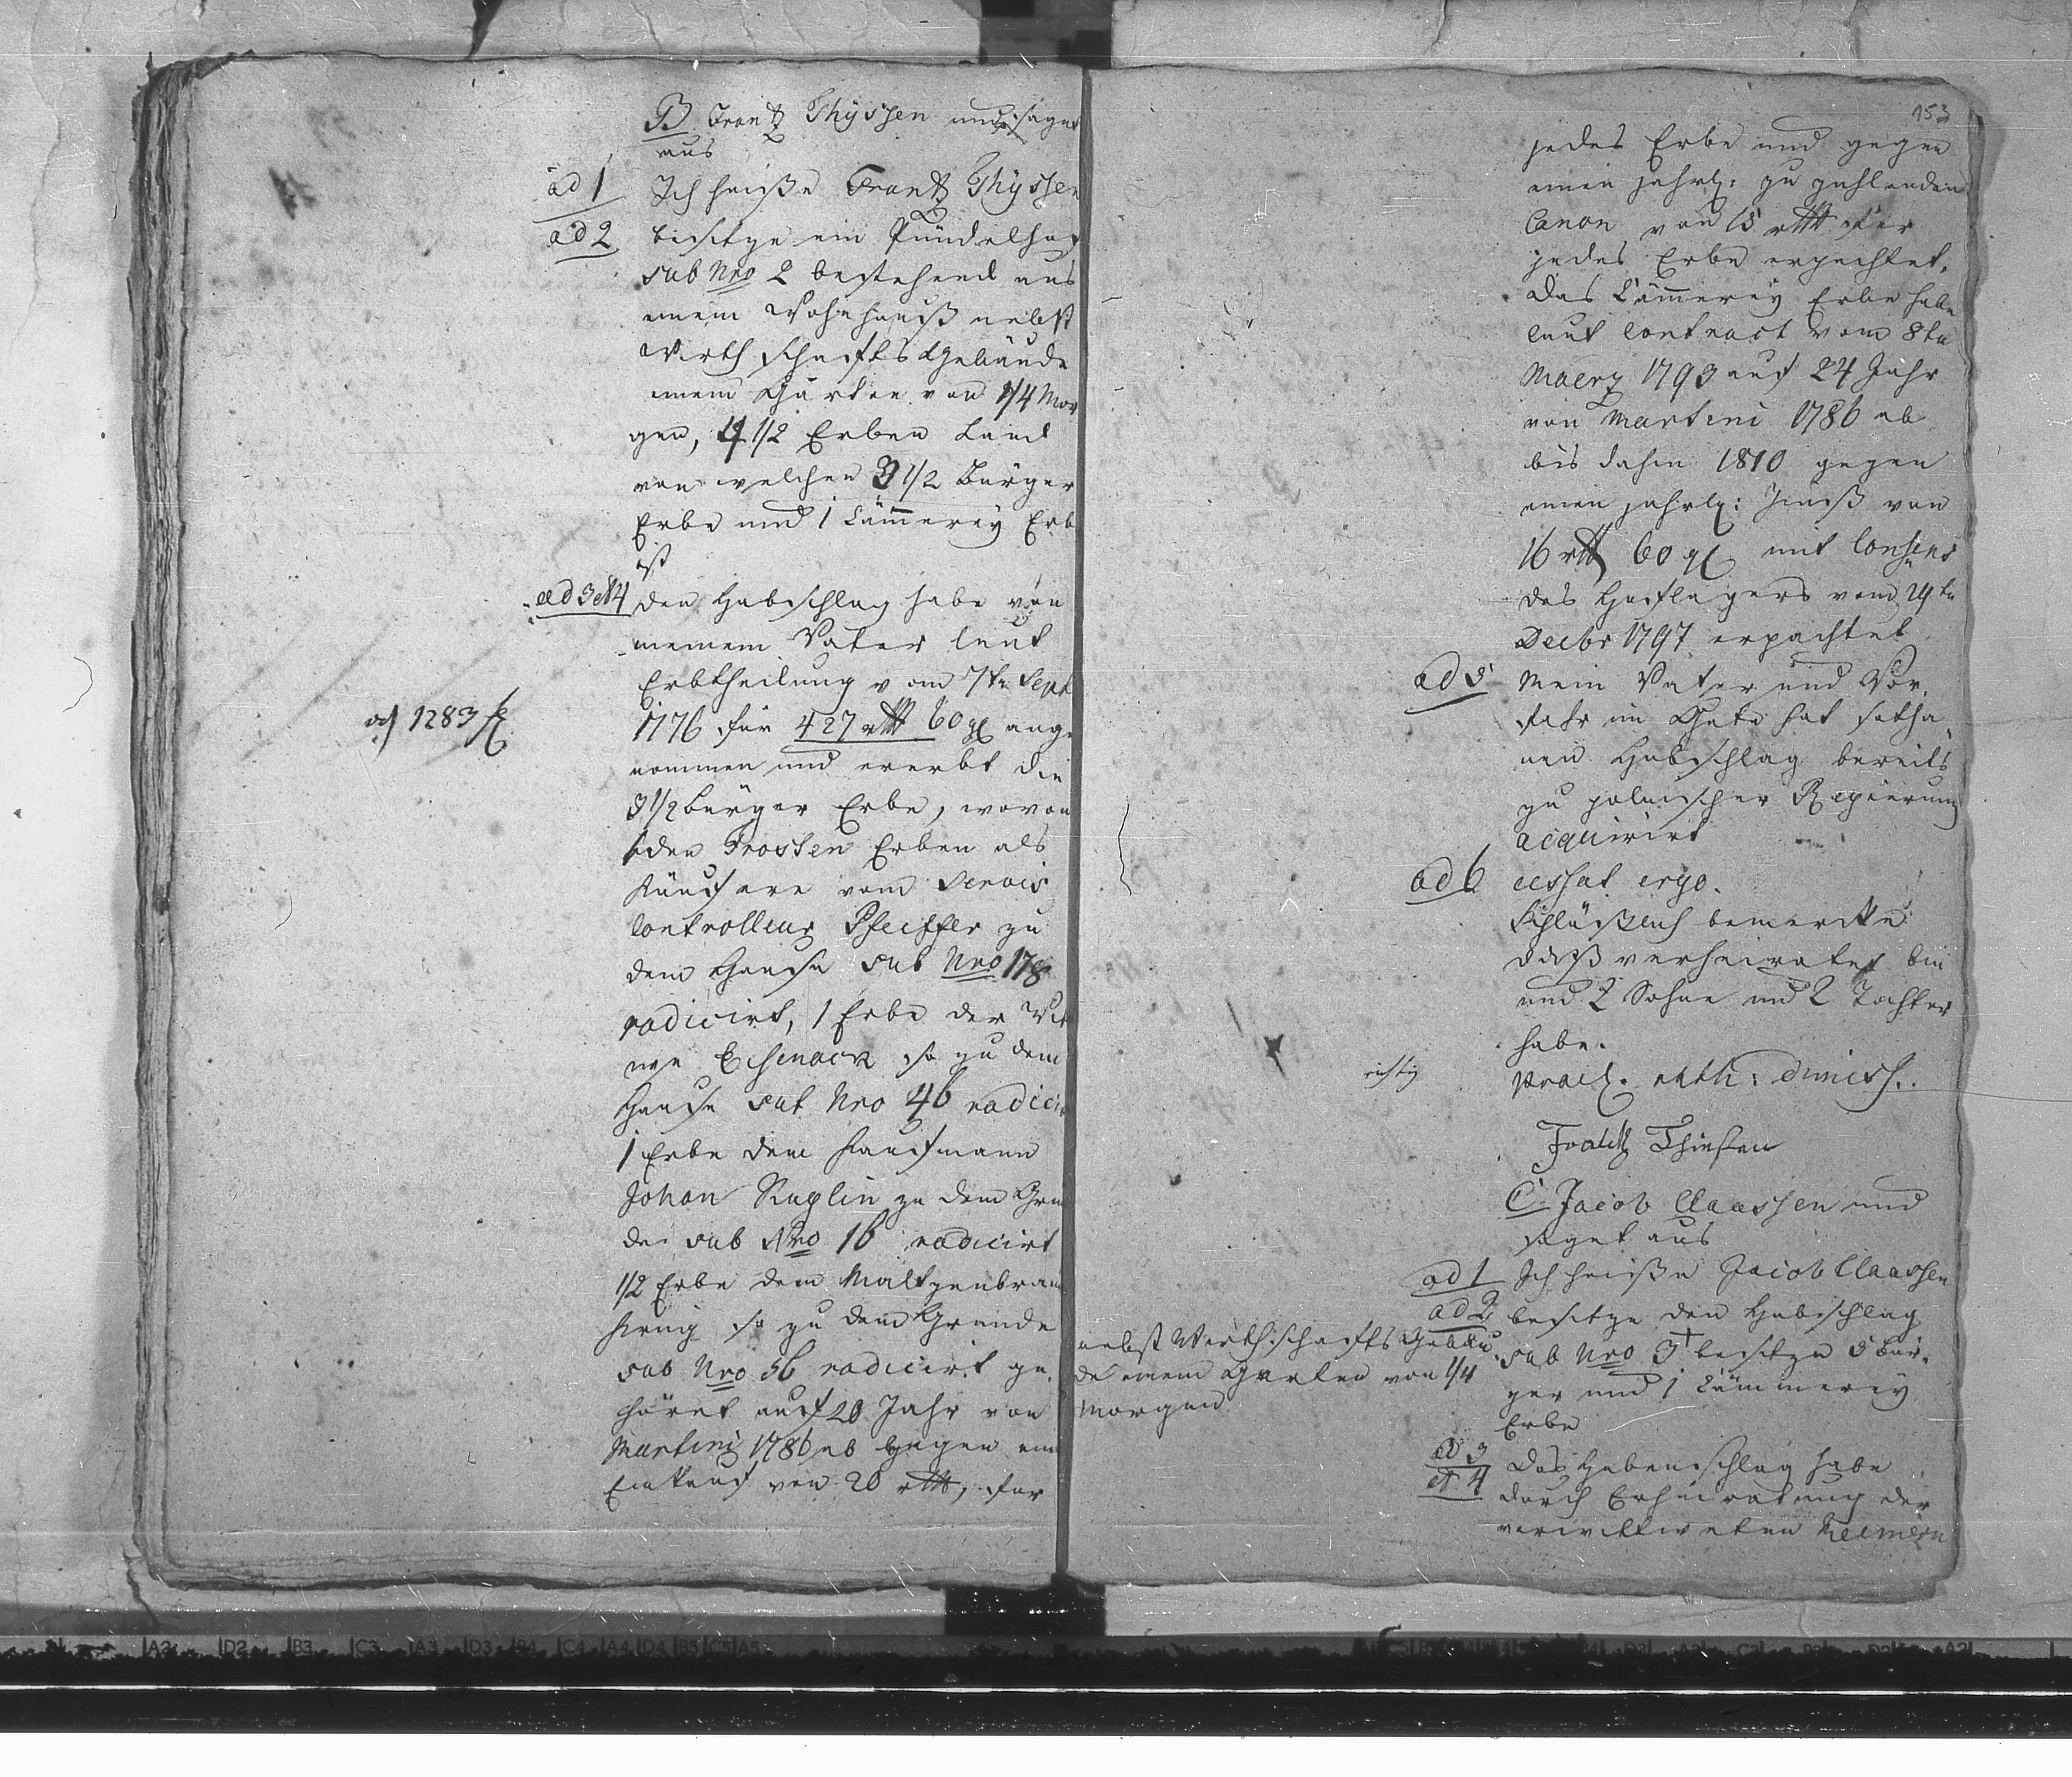 B Frantz Thyssen und saget
aus
ad 1 Ich heiße Frantz Thyssen
ad 2 besitze ein
sub Nro 2 bestehend aus
einem Wohnhauß nebst
Wirthschafts Gebäude
einem Garten von 1/4 Mor
gen, 4 1/2 Erben Land
von welchen 3 1/2 Bürger
Erbe und 1 Cämmerey Erb
ist
ad 3 et 4 den Hubschlag habe von
meinem Vater laut
Erbtheilung vom 7ten Sept
1776 für 427 rtl 60 gl ange
1283 f
nommen und ererbt die
3 1/2 bürger Erbe, wovon
1 den Frossen Erben als
Käufere vom Servis
Controlleur Pfeiffer zu
dem Hause sub Nro 178
radicirt, 1 Erbe der Wit
we Eisenack so zu dem
Hause sub Nro 46 radicir
1 Erbe dem Kaufmann
Johan Ruplin zu dem Grun
de sub Nro 16 radicirt
1/2 Erbe dem Maltzenbrau
so zu dem Grunde
sub Nro 56 radicirt ge
höret auf 20 Jahr von
Martini 1786 ab gegen ein
Einkauf von 20 rtl, für
153
jedes Erbe und gegen
einen jahrl: zu zahlenden
Canon von 15 rtl für
jedes Erbe erpachtet.
das Cämmerey Erbe habe
laut Contract vom 8ten
Maerz 1793 auf 24 Jahr
von Martini 1786 ab
bis dahin 1810 gegen
einen jahrl: Zinß von
16 rtl 60 gl mit Consens
des Hoflagers vom 24ten
Decbr 1797 erpachtet
ad 5 Mein Vater und Vor
fahr im Gute hat sotha
nen Hubschlag bereits
zu polnischer Regierung
acquirirt
ad 6 cessat ergo.
Schlüßlich bemercke
daß verheiratet bin
und 2 Sohne und 2 Tochter
habe.
richtig
prael. rath: dimiss.
Frantz Thiessen
C. Jacob Claassen und
saget aus
ad 1 Ich heiße Jacob Claassen
ad 2 besitze den Hubschlag
sub Nro 3 + besitze 5 bür
ger und 1 Cämmerey
Erbe
nebst Wirthschafts Gebäu
de einem Garten von 1/4
Morgen
ad 3 das Hubenschlag habe
et 4 durch Erheiratung der
verwittweten